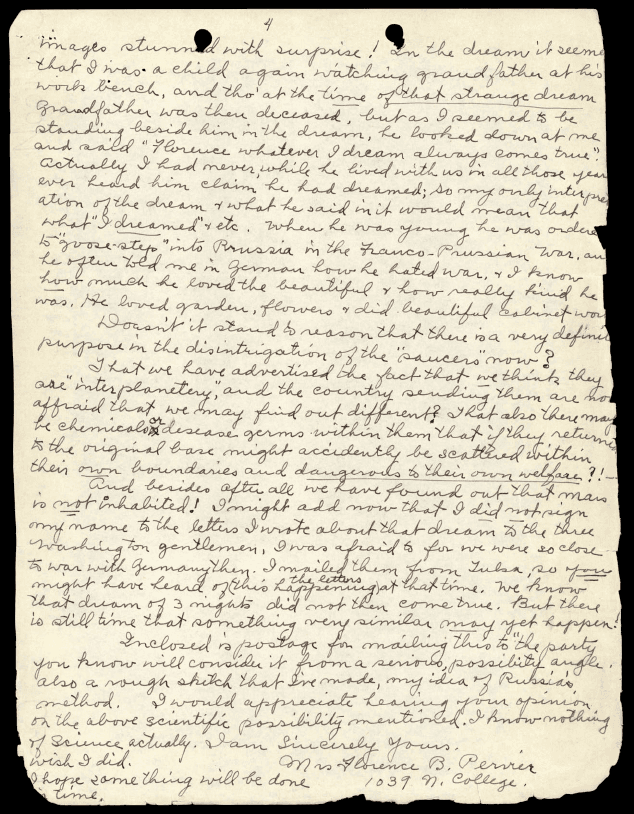 4
images stunned with surprise! In the dream it seeme
that I was a child again watching grandfather at his
work bench, and tho' at the time of that strange dream
Grandfather was then deceased, but as I seemed to be
standing beside him in the dream, he looked down at me
and said "Florence whatever I dream always comes true".
Actually I had never while he lived with us in all those year
ever heard him claim he had dreamed; so my only interpre
ation of the dream & what he said in it would mean that
what "I dreamed" & etc. When he was young he was ordere
to "goose-step" into Prussia in the Franco-Prussian War, an
he often told me in German how he hated war, & I know
how much he loved the beautiful & how really kind he
was. He loved garden, flowers & did beautiful cabinet wor
Doesn't it stand to reason that there is a very definit
purpose in the disintrigation of the "saucers" now?
That we have advertised the fact that we think they
are "interplanetery", and the country sending them are no
afraid that we may find out different? That also there may
be chemicals or disease germs within them that if they returne
to the original base might accidently be scattered within
their own boundaries and dangerous to their own welfare?!—
And besides after all we have found out that mars
is not inhabited! I might add now that I did not sign
my name to the letters I wrote about that dream to the three
Washington gentlemen, I was afraid to for we were so close
to war with Germany then. I mailed them from Tulsa, so you
might have heard of this happening the letters at that time. We know
that dream of 3 nights did not then come true. But there
is still time that something very similar may yet happen!
Inclosed is postage for mailing this to "the party
you know will consider it from a serious, possibility angle.
also a rough sketch that I've made, my idea of Russia's
method. I would appreciate hearing your opinion
on the above scientific possibility mentioned. I know nothing
of Science actually. I am Sincerely Yours.
wish I did. Mrs Florence B. Perrier
I hope something will be done 1039 N. College.
time.